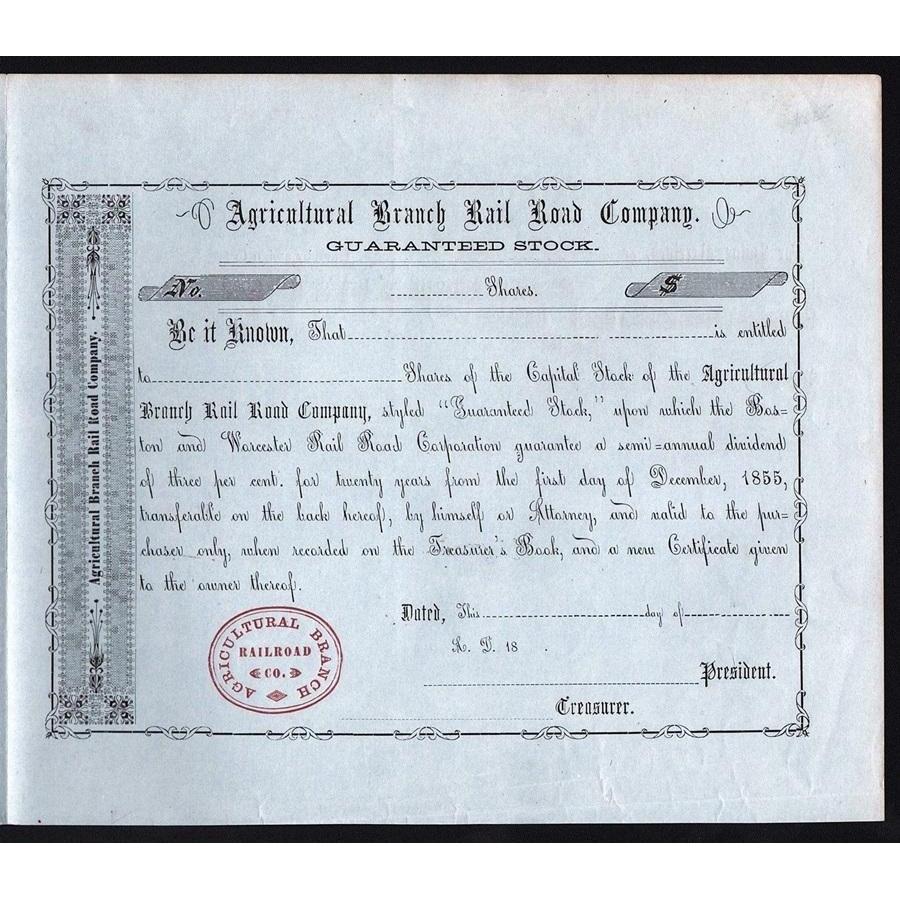 Agricultural Branch Rail Road Company.
GUARANTEED STOCK.
No. Shares. $
Be it Known, That is entitled
to Shares of the Capital Stock of the Agricultural
Branch Rail Road Company, styled "Guaranteed Stock," upon which the Bos=
ton and Worcester Rail Road Corporation guarantee a semi=annual dividend
of three per cent. for twenty years from the first day of December, 1855,
transferable on the back hereof, by himself or Attorney, and valid to the pur=
chaser only, when recorded on the Treasurer's Book, and a new Certificate given
to the owner thereof.
Dated, This day of
A. D. 18 .
President.
Treasurer.
Agricultural Branch Rail Road Company.
AGRICULTURAL BRANCH
RAILROAD
CO.